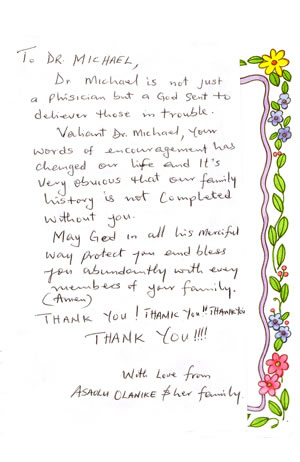 To DR. MICHAEL,
Dr. Michael is not just
a Phisician but a God sent to
deliever those in trouble.
Valiant Dr. Michael, your
words of encouragement has
changed our life and It's
very obvious that our family
history is not completed
without you.
May God in all his merciful
way protect you and bless
you abundantly with every
members of your family.
(Amen)
THANK YOU! THANK YOU!! THANK YOU
THANK YOU!!!!
With Love from
ASAOLU OLANIKE & her family